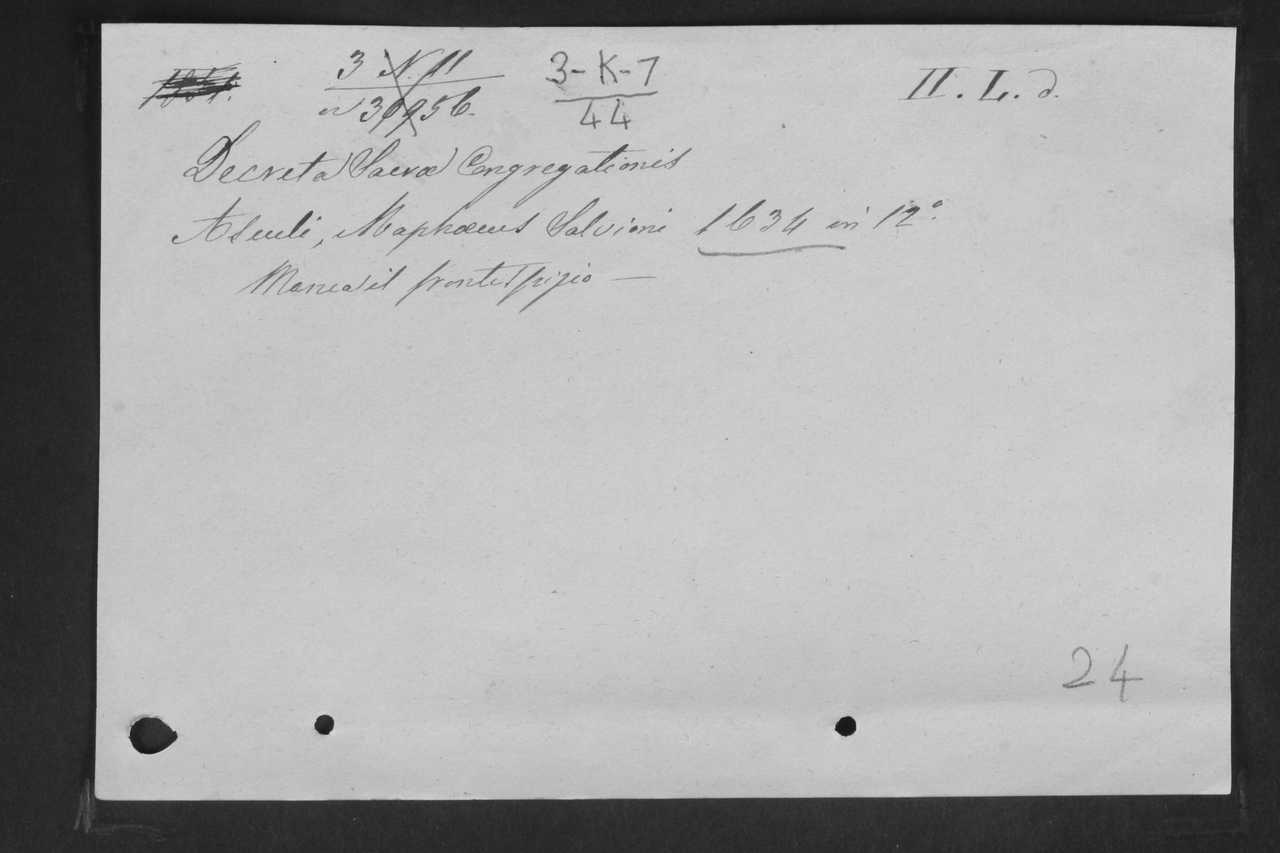 3 N. 11 3-K-7 II. L. d.
44
Decreta Sacræ Congregationis
Asculi, Maphæus Salvioni 1634 in 12°.
Manca il frontespizio —
24